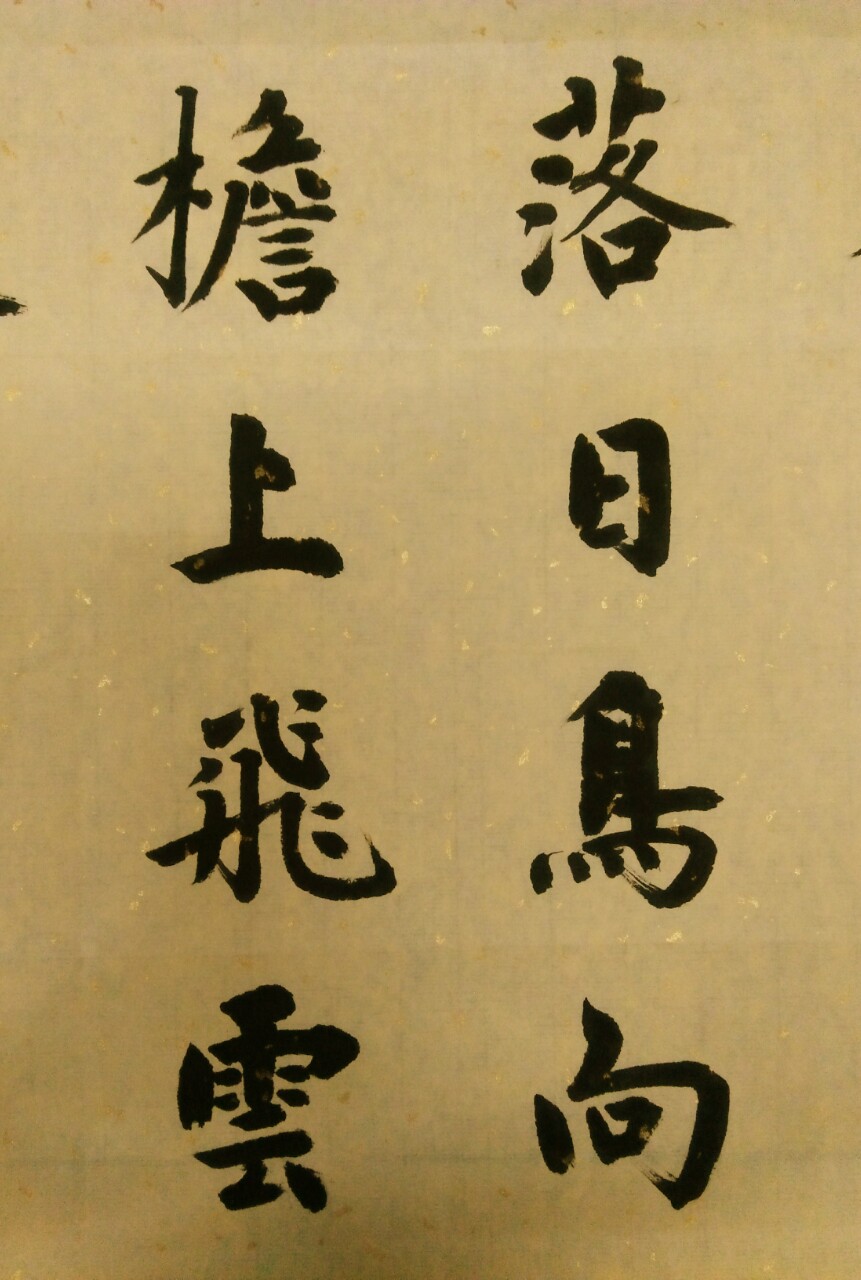 落日鳥向
檐上飛雲